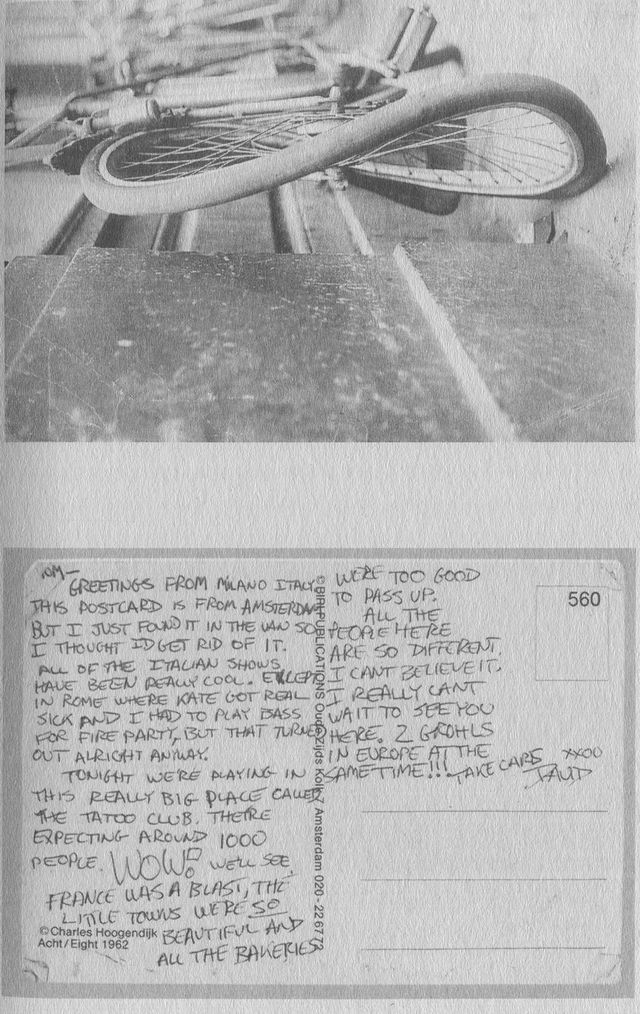 MOM—
GREETINGS FROM MILANO ITALY
THIS POSTCARD IS FROM AMSTERDAM
BUT I JUST FOUND IT IN THE VAN SO
I THOUGHT I'D GET RID OF IT.
ALL OF THE ITALIAN SHOWS
HAVE BEEN REALLY COOL. EXCEPT
IN ROME WHERE KATE GOT REAL
SICK AND I HAD TO PLAY BASS
FOR FIRE PARTY, BUT THAT TURNED
OUT ALRIGHT ANYWAY.
TONIGHT WE'RE PLAYING IN
THIS REALLY BIG PLACE CALLED
THE TATOO CLUB. THE'RE
EXPECTING AROUND 1000
PEOPLE. WOW! WE'LL SEE.
FRANCE WAS A BLAST, THE
LITTLE TOWNS WERE SO
BEAUTIFUL AND
ALL THE BAKERIES
©Charles Hoogendijk
Acht/Eight 1962
© BIRI PUBLICATIONS Oude Zijds Kolk 7 Amsterdam 020-226773
WERE TOO GOOD
TO PASS UP.
ALL THE
PEOPLE HERE
ARE SO DIFFERENT.
I CANT BELIEVE IT.
I REALLY CANT
WAIT TO SEE YOU
HERE. 2 GROHLS
IN EUROPE AT THE
SAME TIME!!! TAKE CARE XXOO
DAVID
560